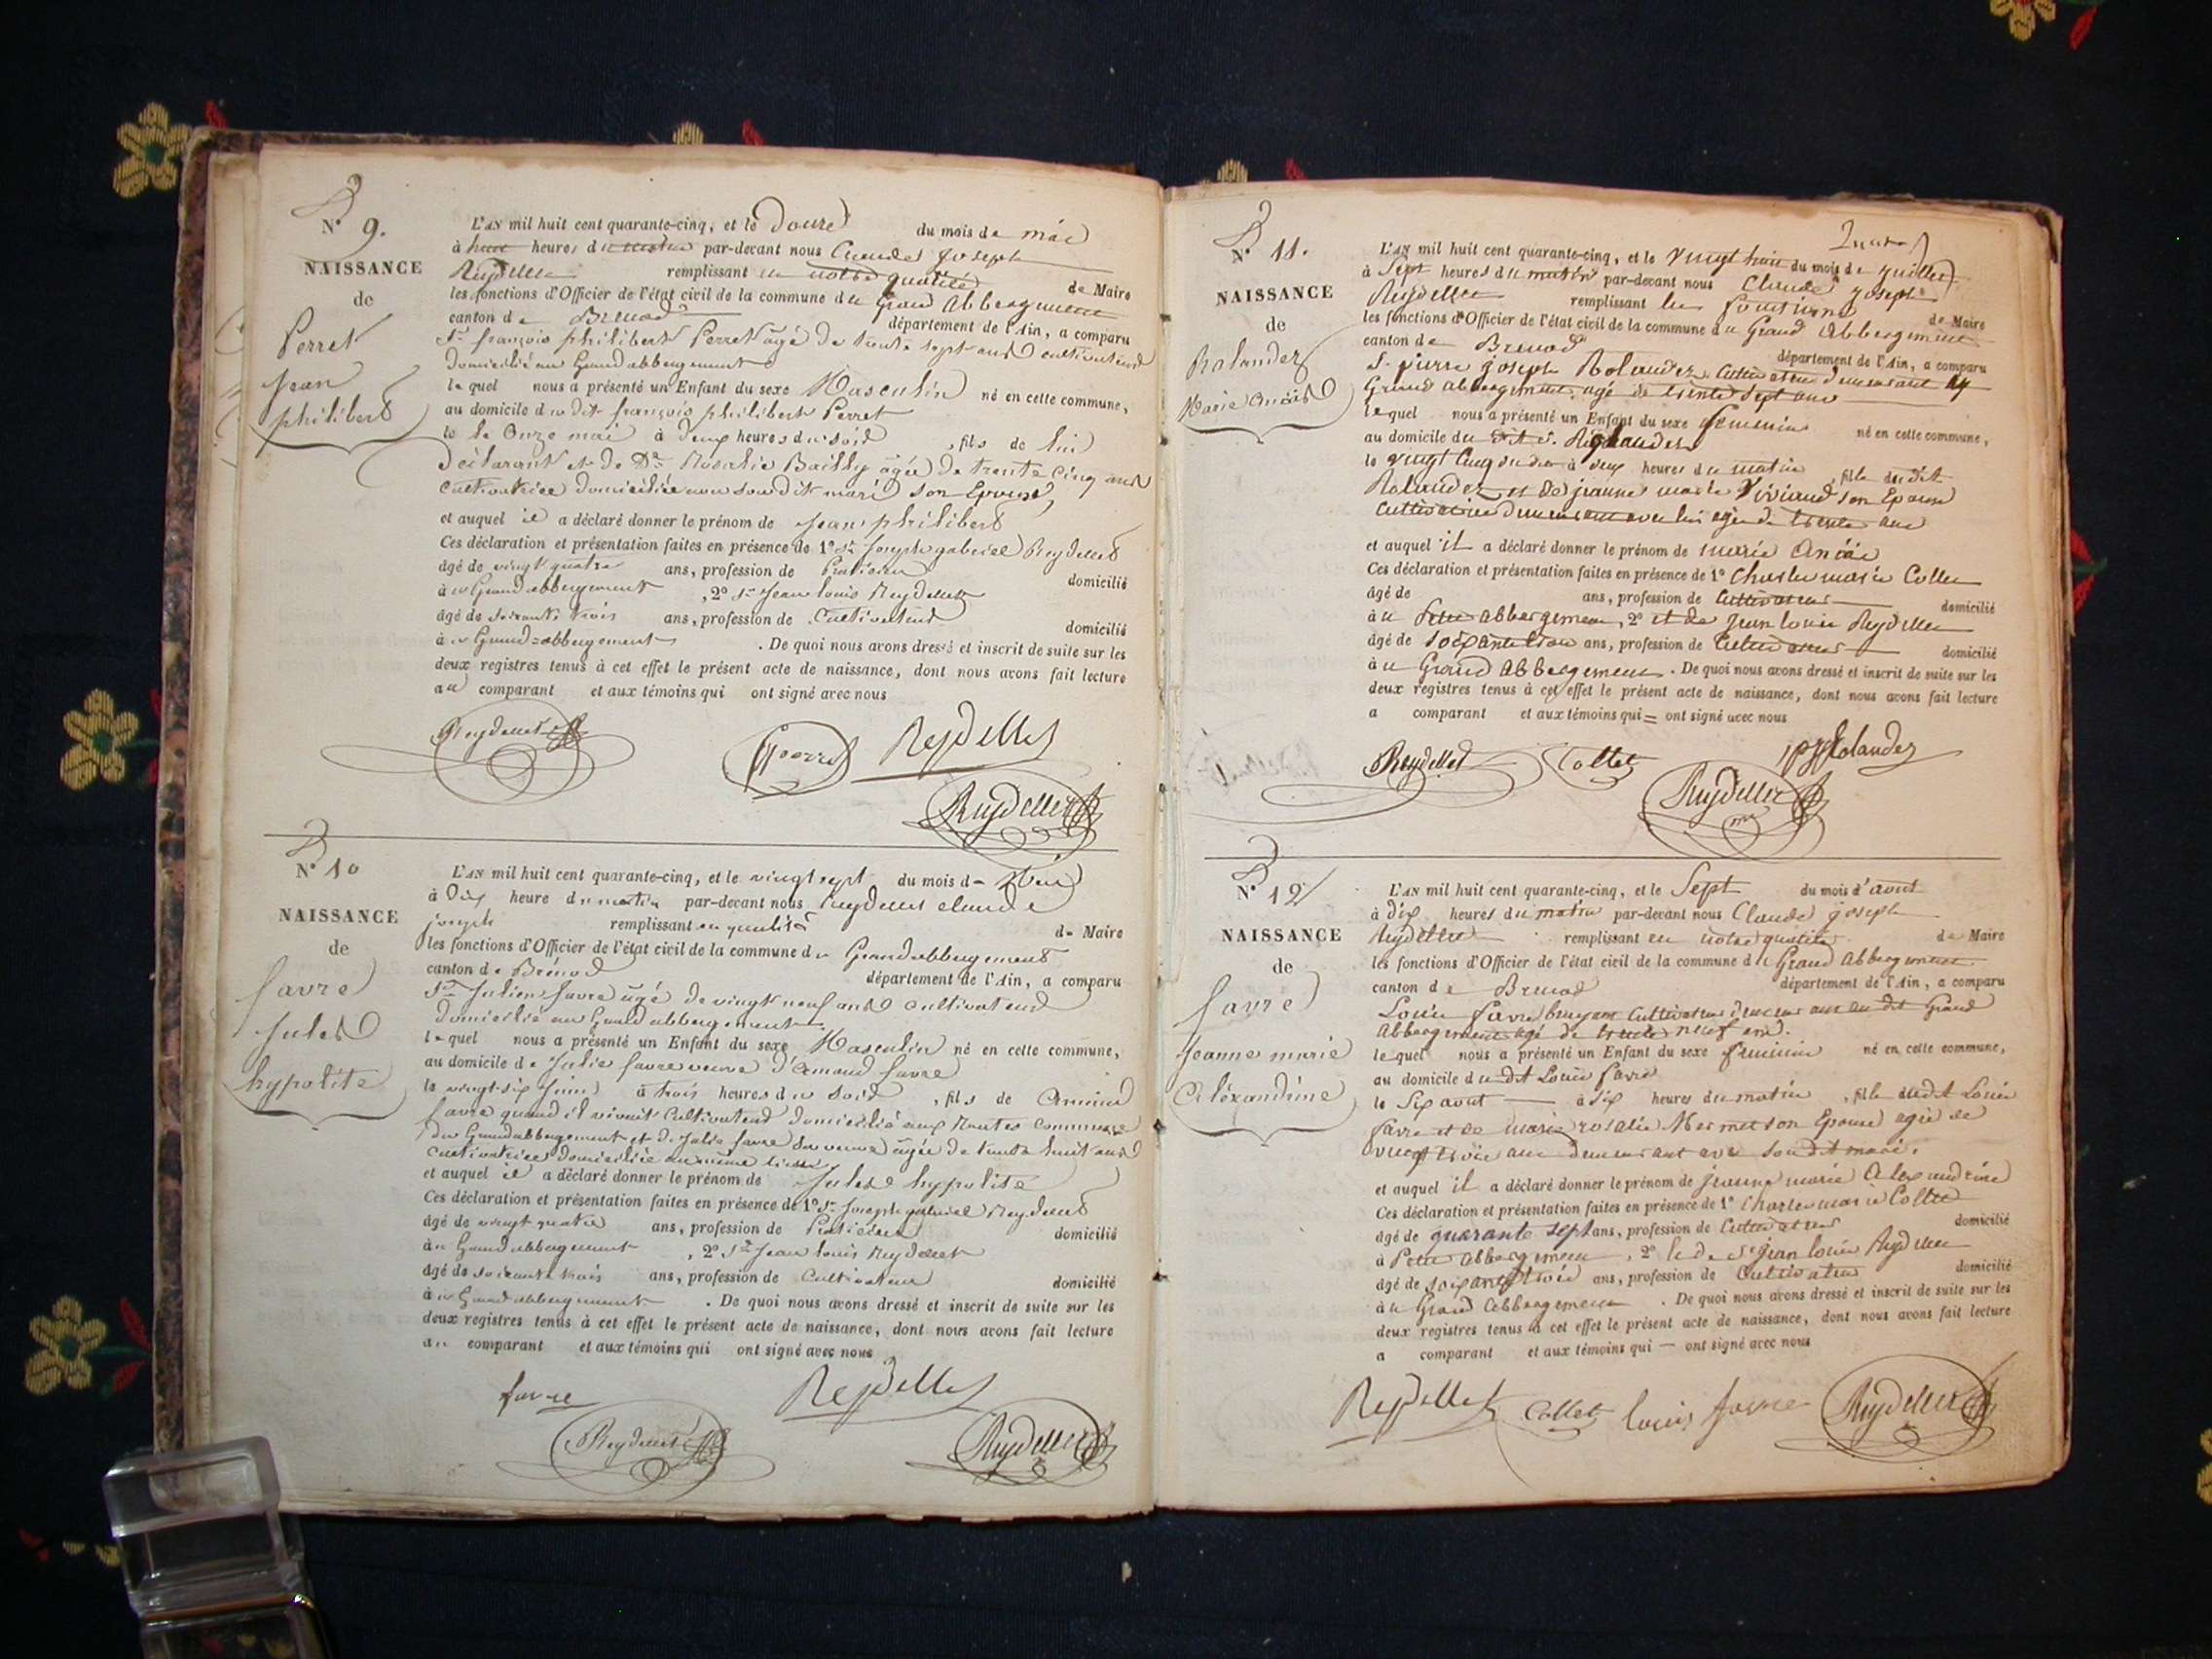 N° 9.
NAISSANCE
de
Perret
Jean
philibert
L'AN mil huit cent quarante-cinq, et le douze du mois de mai
à heures du matin par-devant nous Claude Joseph
Reydellet remplissant en notre qualité de Maire
les fonctions d'Officier de l'état civil de la commune du Grand Abbergement
canton de Brenod département de l'Ain, a comparu
Sr françois philibert Perret âgé de trente sept ans cultivateur
domicilié au Grand abbergement
lequel nous a présenté un Enfant du sexe Masculin né en cette commune,
au domicile du dit françois philibert Perret
le le Onze mai à deux heures du soir, fils de lui
déclarant et de De Rosalie Bailly âgée de trente cinq ans
cultivatrice domiciliée avec son dit mari son Epouse
et auquel il a déclaré donner le prénom de Jean philibert
Ces déclaration et présentation faites en présence de 1° Sr Joseph gabriel Reydellet
âgé de vingt quatre ans, profession de Praticien domicilié
à u Grand abbergement, 2° Sr Jean louis Reydellet
âgé de soixante trois ans, profession de Cultivateur domicilié
à u Grand-abbergement. De quoi nous avons dressé et inscrit de suite sur les
deux registres tenus à cet effet le présent acte de naissance, dont nous avons fait lecture
au comparant et aux témoins qui ont signé avec nous
Reydellet Perret Reydellet
Reydellet
N° 10
NAISSANCE
de
favre
Jules
hypolite
L'AN mil huit cent quarante-cinq, et le vingt sept du mois de
à dix heure du matin par-devant nous Reydellet claude
joseph remplissant en qualité de Maire
les fonctions d'Officier de l'état civil de la commune du Grand abbergement
canton de Brénod département de l'Ain, a comparu
Sr Julien favre âgé de vingt neuf ans cultivateur
domicilié au Grand abbergement
lequel nous a présenté un Enfant du sexe Masculin né en cette commune,
au domicile de Julie favre veuve d'Armand favre
le vingt-six juin à trois heures du soir, fils de Armand
favre quand il vivait Cultivateur domicilié aux Routes commune
du Grand abbergement et de Julie favre sa veuve âgée de trente huit ans
cultivatrice domiciliée au même lieu
et auquel il a déclaré donner le prénom de Jules hypolite
Ces déclaration et présentation faites en présence de 1° Sr Joseph gabriel Reydellet
âgé de vingt quatre ans, profession de Praticien domicilié
à u Grand abbergement, 2° Sr Jean louis Reydellet
âgé de soixante trois ans, profession de Cultivateur domicilié
à u Grand abbergement. De quoi nous avons dressé et inscrit de suite sur les
deux registres tenus à cet effet le présent acte de naissance, dont nous avons fait lecture
au comparant et aux témoins qui ont signé avec nous
favre Reydellet
Reydellet Reydellet
N° 11.
NAISSANCE
de
Rolandez
Marie Anaïs
L'AN mil huit cent quarante-cinq, et le vingt huit du mois de juillet
à Sept heures du matin par-devant nous Claude joseph
Reydellet remplissant les fonctions de Maire
les fonctions d'Officier de l'état civil de la commune du Grand Abbergement
canton de Brenod département de l'Ain, a comparu
S. pierre joseph Rolandez Cultivateur demeurant au
Grand abbergement, agé de trente sept ans
lequel nous a présenté un Enfant du sexe féminin né en cette commune,
au domicile du dit S. Rolandez
le vingt cinq du dit à deux heures du matin, fille du dit
Rolandez et de jeanne marie Viviand son Epouse
cultivatrice demeurant avec lui agée de trente ans
et auquel il a déclaré donner le prénom de marie
Ces déclaration et présentation faites en présence de 1° Charles marie Collet
âgé de ans, profession de Cultivateur domicilié
à u Petit abbergement, 2° et de jean louis Reydellet
âgé de soixante trois ans, profession de Cultivateur domicilié
à u Grand Abbergement. De quoi nous avons dressé et inscrit de suite sur les
deux registres tenus à cet effet le présent acte de naissance, dont nous avons fait lecture
a comparant et aux témoins qui = ont signé avec nous
Reydellet Collet Rolandez
Reydellet
N° 12
NAISSANCE
de
favre
Jeanne marie
Aléxandrine
L'AN mil huit cent quarante-cinq, et le Sept du mois d'aout
à dix heures du matin par-devant nous Claude joseph
Reydellet remplissant en notre qualité de Maire
les fonctions d'Officier de l'état civil de la commune du Grand Abbergement
canton de Brenod département de l'Ain, a comparu
Louis favre Cultivateur demeurant au dit Grand
Abbergement agé de trente neuf ans.
lequel nous a présenté un Enfant du sexe féminin né en cette commune,
au domicile du dit Louis favre
le Six aout à six heures du matin, fille du dit Louis
favre et de marie rosalie Mermet son Epouse agée de
vingt trois ans demeurant avec son dit mari.
et auquel il a déclaré donner le prénom de jeanne marie Alexandrine
Ces déclaration et présentation faites en présence de 1° Charles marie Collet
âgé de quarante sept ans, profession de Cultivateur domicilié
à Petit abbergement, 2° de St jean louis Reydellet
âgé de soixante trois ans, profession de Cultivateur domicilié
à u Grand abbergement. De quoi nous avons dressé et inscrit de suite sur les
deux registres tenus à cet effet le présent acte de naissance, dont nous avons fait lecture
a comparant et aux témoins qui — ont signé avec nous
Reydellet Collet louis favre Reydellet